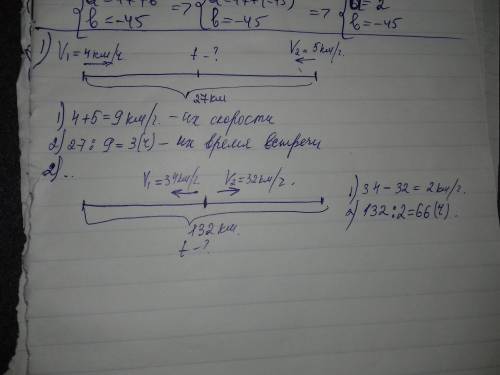 b=-45 => b=-45 => b=-45
1) V₁=4км/ч. t-? V₂=5км/г.
27км
1) 4+5=9 км/г. - их скорости
2) 27:9=3(ч) - их время встречи
2)...
V₁=34км/г. V₂=32км/г.
132км.
t-?
1) 34-32=2км/г.
2) 132:2=66(ч).